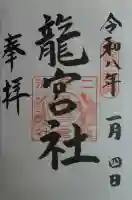 令和八年 一月四日
龍宮社
奉拝